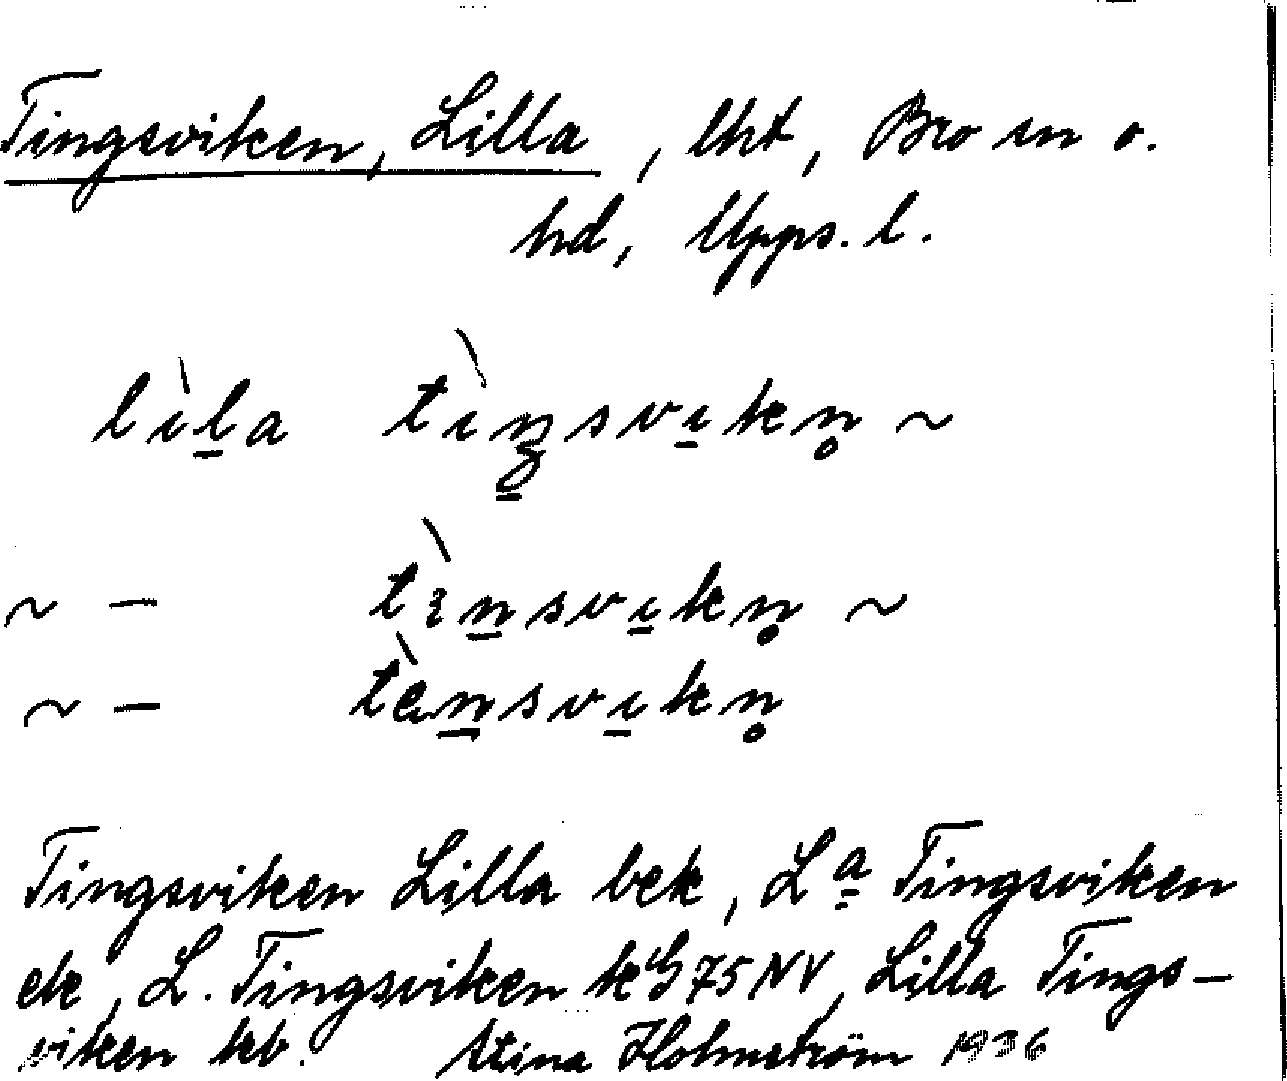 Tingsviken, Lilla, lht, Bro sn o.
hd, Upps. l.
lìla tìŋsvikn̥ ~
~ — tìnsvikn̥ ~
~ — tènsvikn̥
Tingsviken Lilla bek, L:a Tingsviken
ek, L. Tingsviken kG 75 NV, Lilla Tings-
viken kb. Stina Holmström 1936